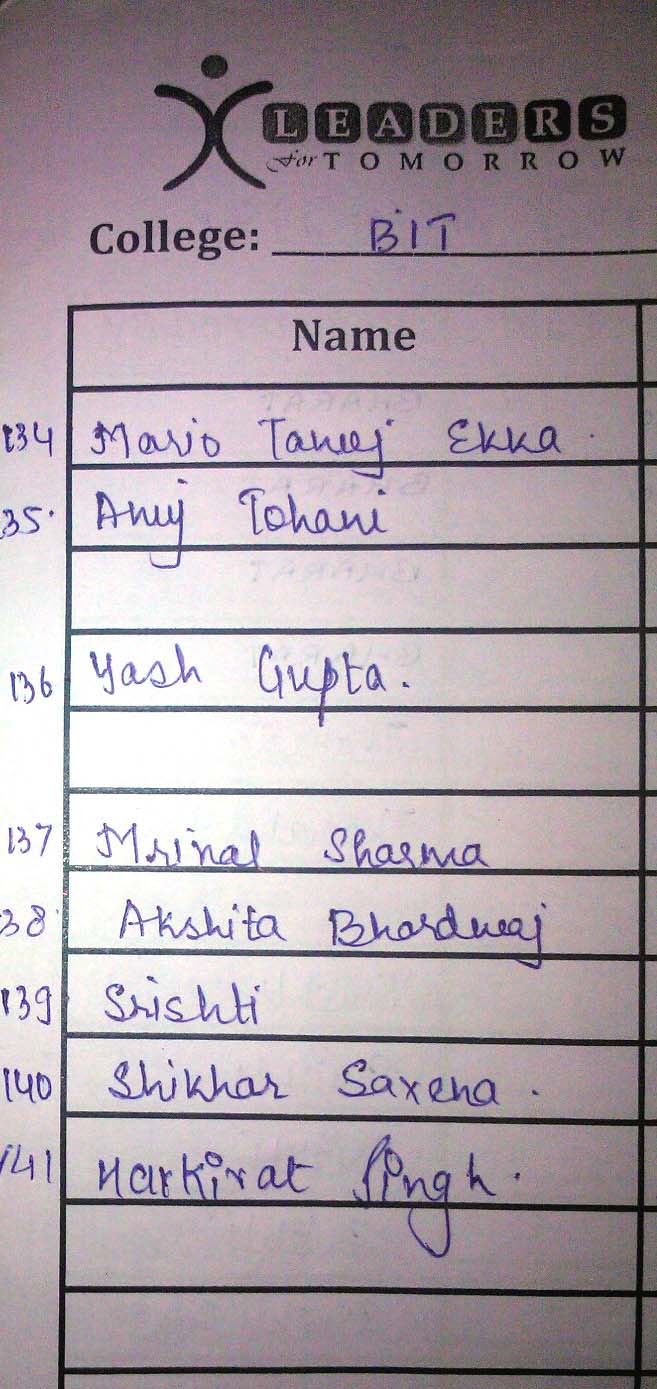 LEADERS
for TOMORROW
College: BIT
Name
134 Mario Tanuj Ekka.
35. Anuj Tohani
136 Yash Gupta.
137 Mrinal Sharma
38. Akshita Bhardwaj
139 Srishti
140 Shikhar Saxena.
141 Harkirat Singh.